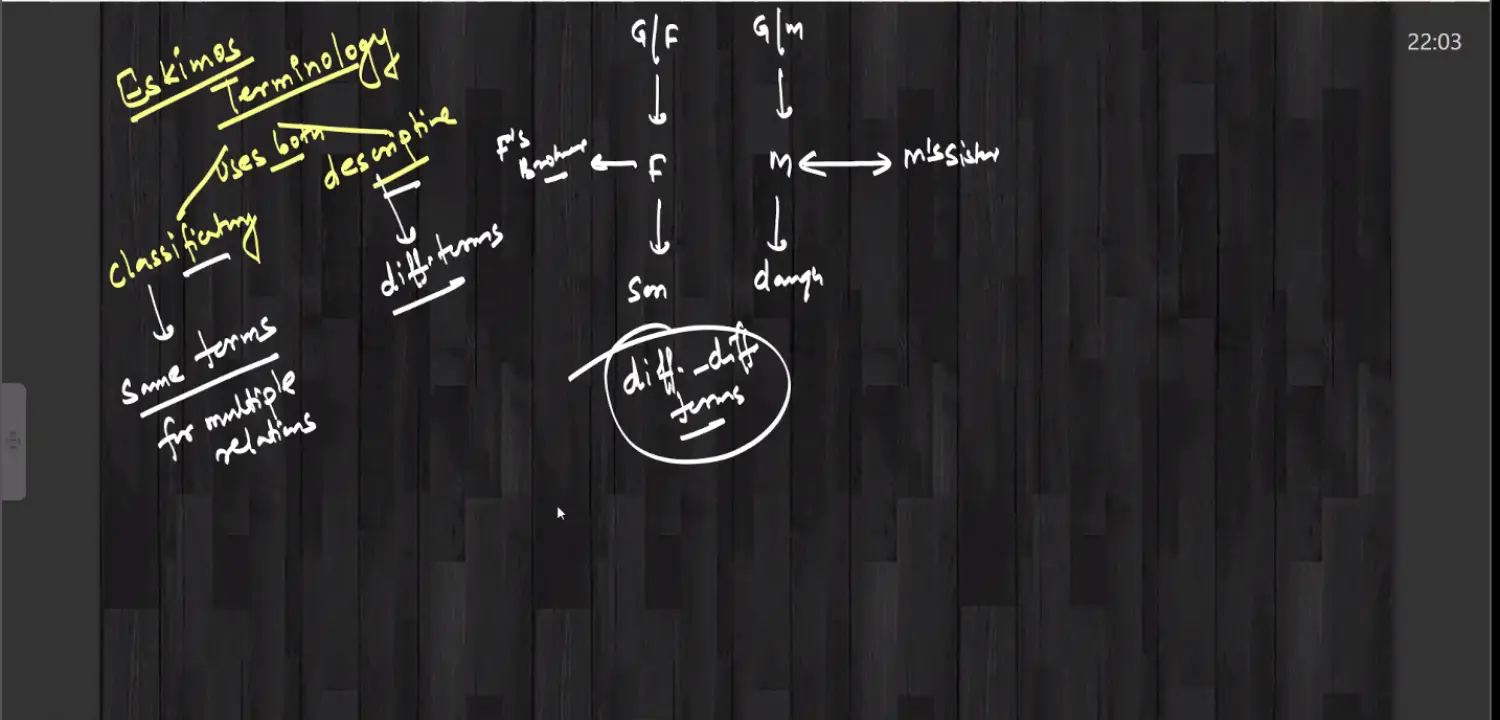 Eskimos
Terminology
uses both
descriptive
classificatory
diff. terms
same terms
for multiple
relations
G/F
G/M
F's
Brother
F
M
M's Sister
Son
daugh
diff. - diff
terms
22:03